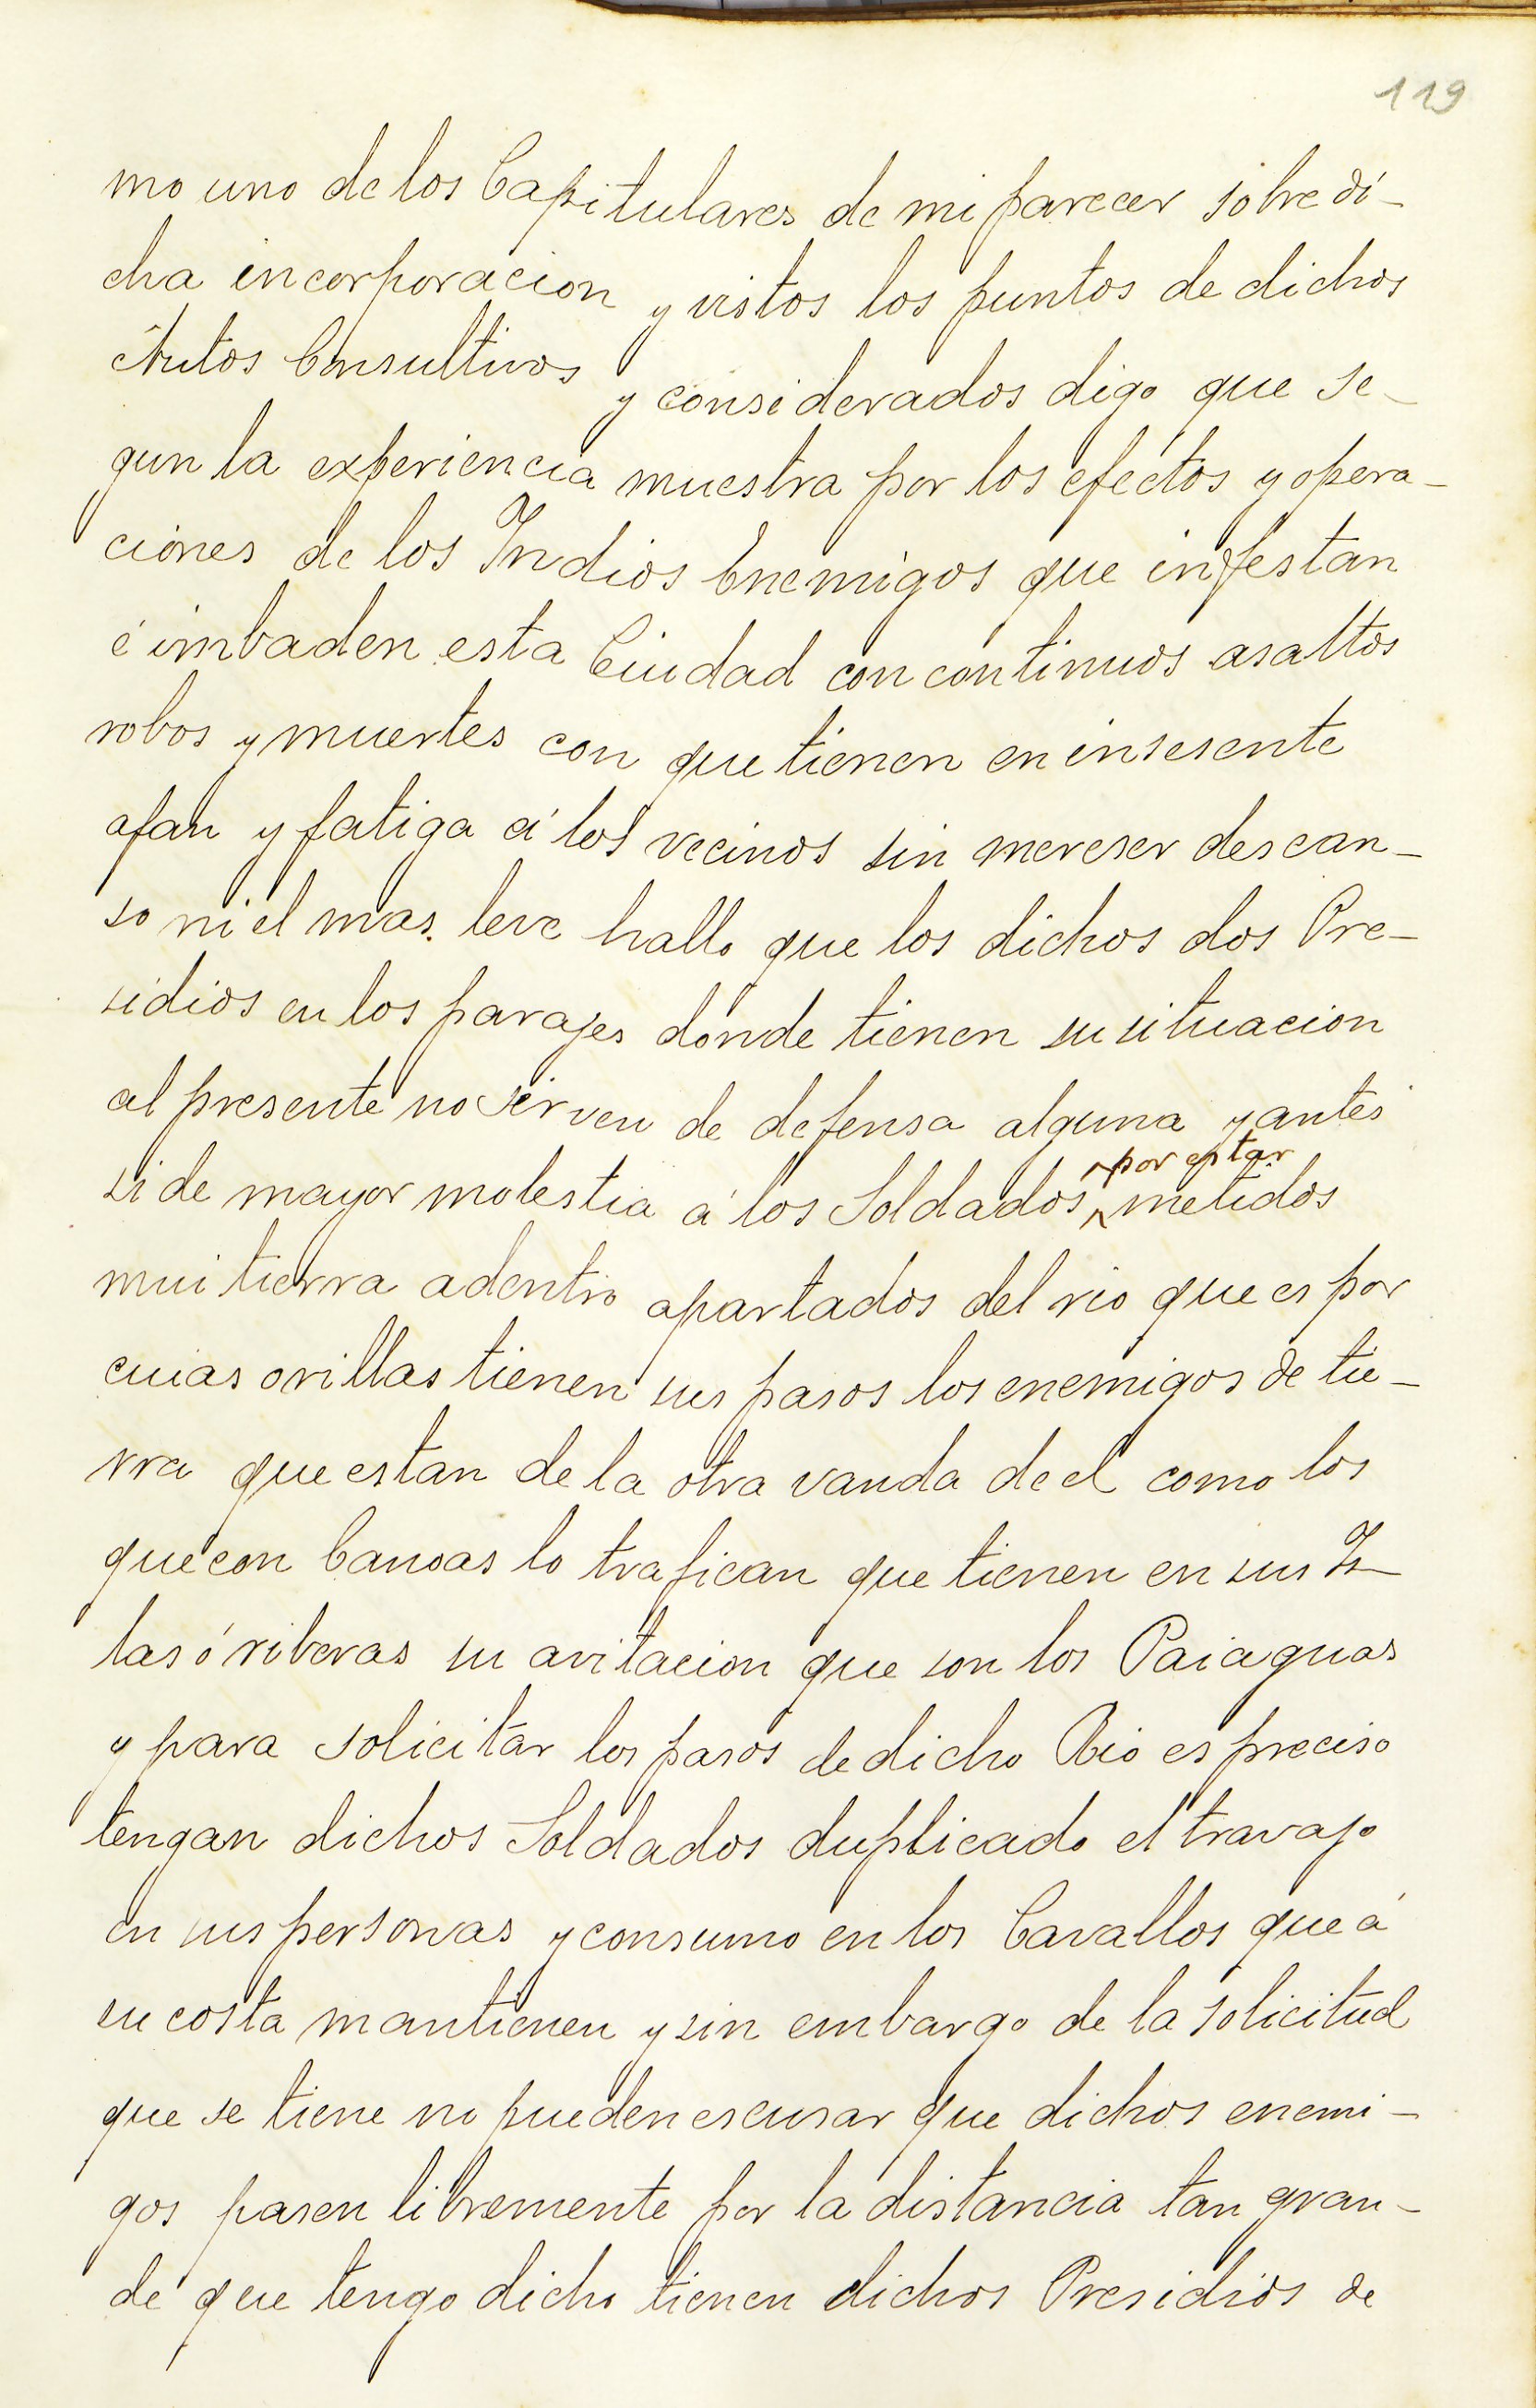 119
mo uno de los Capitulares de mi parecer sobre di-
cha incorporacion y vistos los puntos de dichos
Autos Consultivos y considerados digo que se-
gun la experiencia muestra por los efectos y opera-
ciones de los Indios Enemigos que infestan
é imbaden esta Ciudad con continuos asaltos
robos y muertes con que tienen en insesente
afan y fatiga á los vecinos sin mereser descan-
so ni el mas leve hallo que los dichos dos Pre-
sidios en los parajes donde tienen su situacion
al presente no sirven de defensa alguna y antes
si de mayor molestia á los Soldados por estar metidos
mui tierra adentro apartados del rio que es por
cuias orillas tienen sus pasos los enemigos de tie-
rra que estan de la otra vanda de el como los
que con Canoas lo trafican que tienen en sus Is-
las ó riberas su avitacion que son los Paiaguas
y para solicitar los pasos de dicho Rio es preciso
tengan dichos Soldados duplicado el travajo
en sus personas y consumo en los Cavallos que á
su costa mantienen y sin embargo de la solicitud
que se tiene no pueden escusar que dichos enemi-
gos pasen libremente por la distancia tan gran-
de que tengo dicho tienen dichos Presidios de